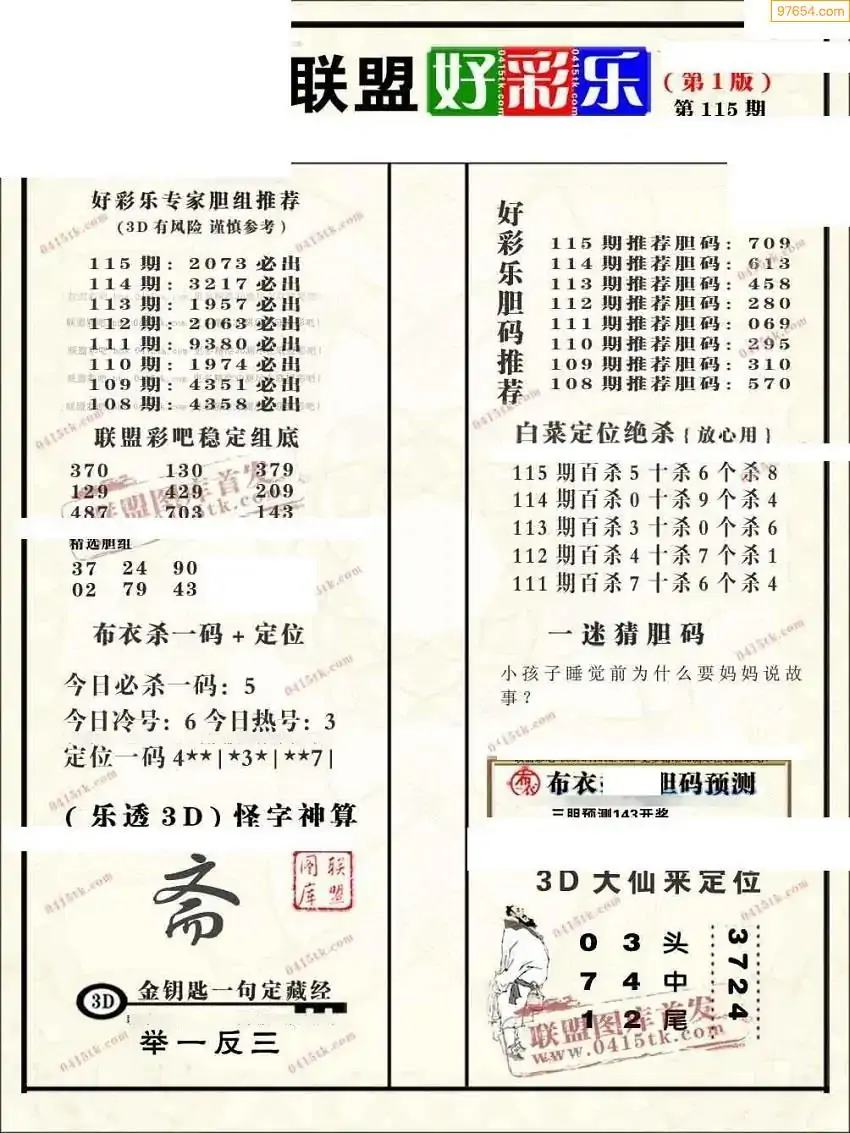 97654.com
联盟好彩乐
(第1版)
第 115 期
好彩乐专家胆组推荐
(3D有风险 谨慎参考)
115期: 2073必出
114期: 3217必出
113期: 1957必出
112期: 2063必出
111期: 9380必出
110期: 1974必出
109期: 4351必出
108期: 4358必出
联盟彩吧稳定组底
370 130 379
129 429 209
487 703 143
联盟图库首发
精选胆组
37 24 90
02 79 43
布衣杀一码+定位
今日必杀一码: 5
今日冷号: 6 今日热号: 3
定位一码 4**|*3*|**7|
(乐透3D)怪字神算
斋
联盟图库
3D 金钥匙一句定藏经
举一反三
好彩乐胆码推荐
115期推荐胆码: 709
114期推荐胆码: 613
113期推荐胆码: 458
112期推荐胆码: 280
111期推荐胆码: 069
110期推荐胆码: 295
109期推荐胆码: 310
108期推荐胆码: 570
白菜定位绝杀{放心用}
115期百杀5十杀6个杀8
114期百杀0十杀9个杀4
113期百杀3十杀0个杀6
112期百杀4十杀7个杀1
111期百杀7十杀6个杀4
一迷猜胆码
小孩子睡觉前为什么要妈妈说故
事?
布 布衣 胆码预测
三胆预测143开奖
3D大仙来定位
0 3 头
7 4 中
1 2 尾
3724
联盟图库首发
www.0415tk.com